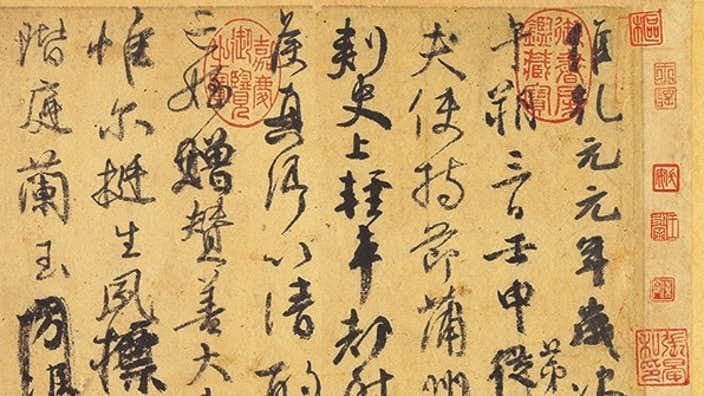 維乾元元年歲次
午朔三日壬申從
第
夫使持節蒲州
刺史上輕車都尉
侯真卿以清酌
亡姪贈贊善大
惟爾挺生夙標
階庭蘭玉
御書房鑑藏寶
嘉慶御覽之寶
樞